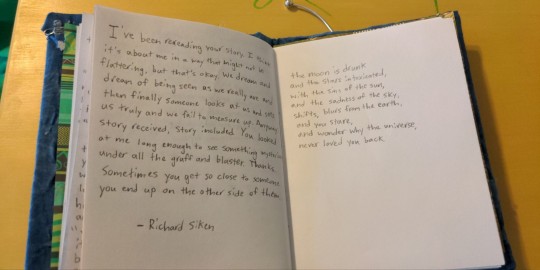 I've been rereading your story. I think
it's about me in a way that might not be
flattering, but that's okay. We dream and
dream of being seen as we really are and
then finally someone looks at us and sees
us truly and we fail to measure up. Anyway:
story received, story included. You looked
at me long enough to see something mysterious
under all the gruff and bluster. Thanks.
Sometimes you get so close to someone
you end up on the other side of them.
– Richard Siken
the moon is drunk
and the stars intoxicated,
with the sins of the sun,
and the sadness of the sky,
shifts, blues from the earth,
and you stare,
and wonder why the universe,
never loved you back